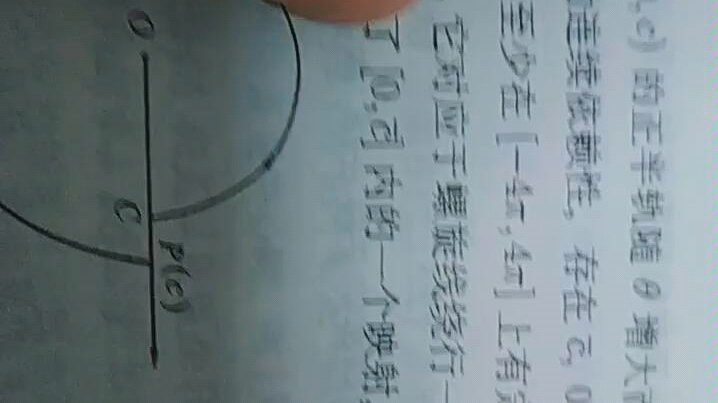 ,c) 的正半轨随 θ 增大
连续依赖性, 存在 c̄, 0
至少在 [-4π,4π] 上有
它对应于螺旋线绕行一
了 [0,c̄] 内的一个映射
O
C
P(c)